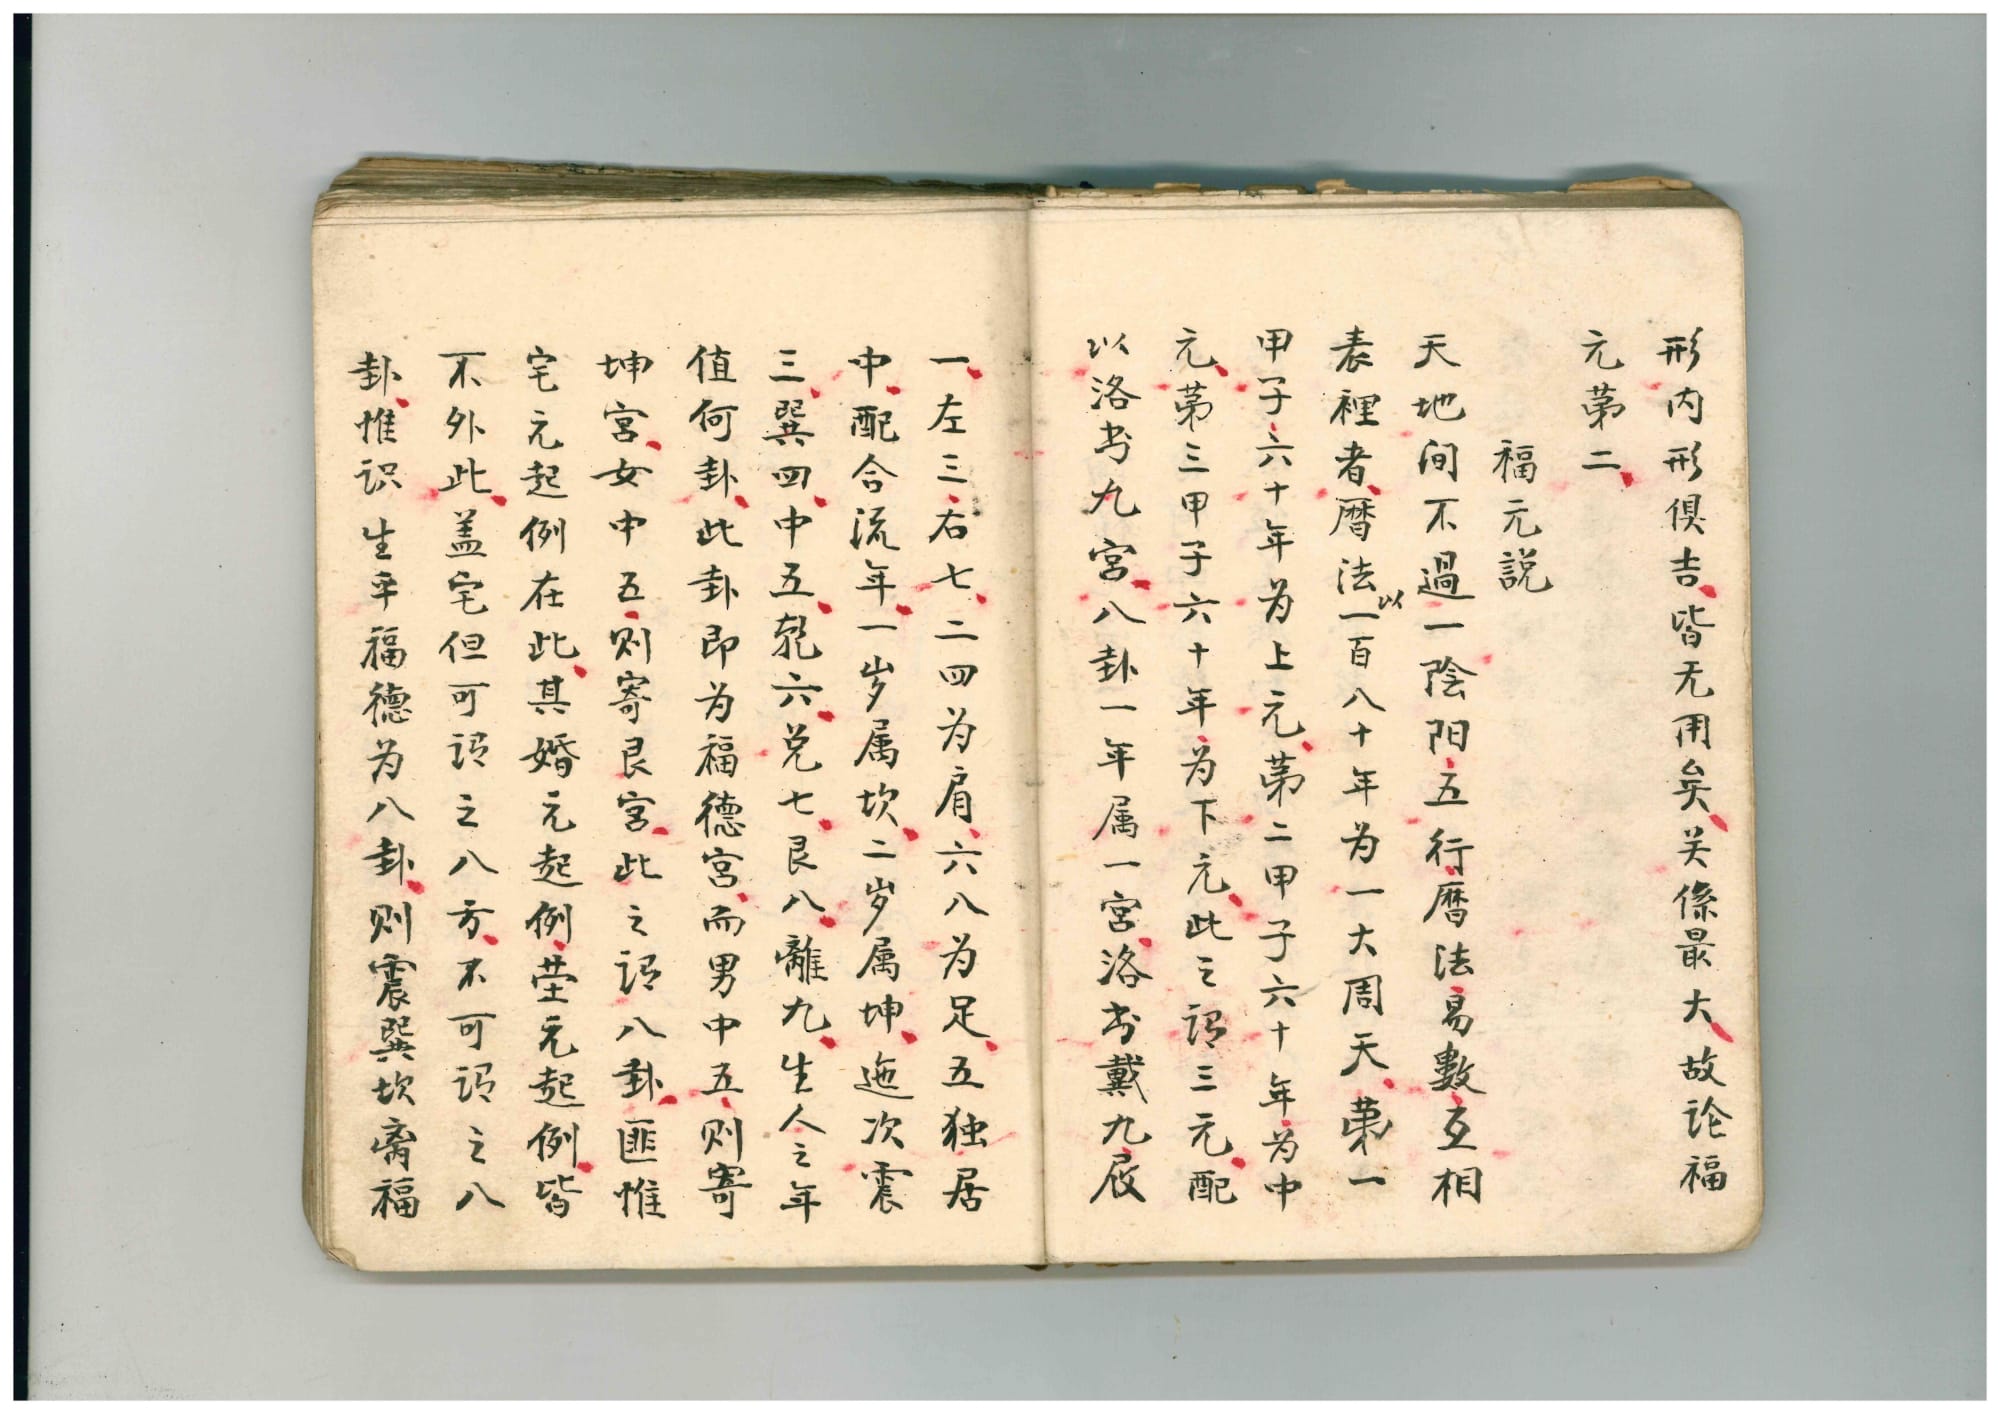 形内形俱吉、皆无用矣、关係最大、故论福
元第二、
福元説
天地间不過一陰阳五行、曆法易數互相
表裡者、曆法以一百八十年为一大周天、第一
甲子六十年为上元、第二甲子六十年为中
元、第三甲子六十年为下元、此之谓三元、配
以洛书九宮、八卦一年属一宮、洛书戴九履
一、左三右七、二四为肩、六八为足、五独居
中、配合流年、一岁属坎、二岁属坤、迤次震
三、巽四、中五、乾六、兑七、艮八、離九、生人之年
值何卦、此卦即为福德宮、而男中五、则寄
坤宮、女中五、则寄艮宮、此之谓八卦、匪惟
宅元起例在此、其婚元起例、茔元起例、皆
不外此、盖宅但可谓之八方、不可谓之八
卦、惟识生年福德为八卦、则震巽坎离福